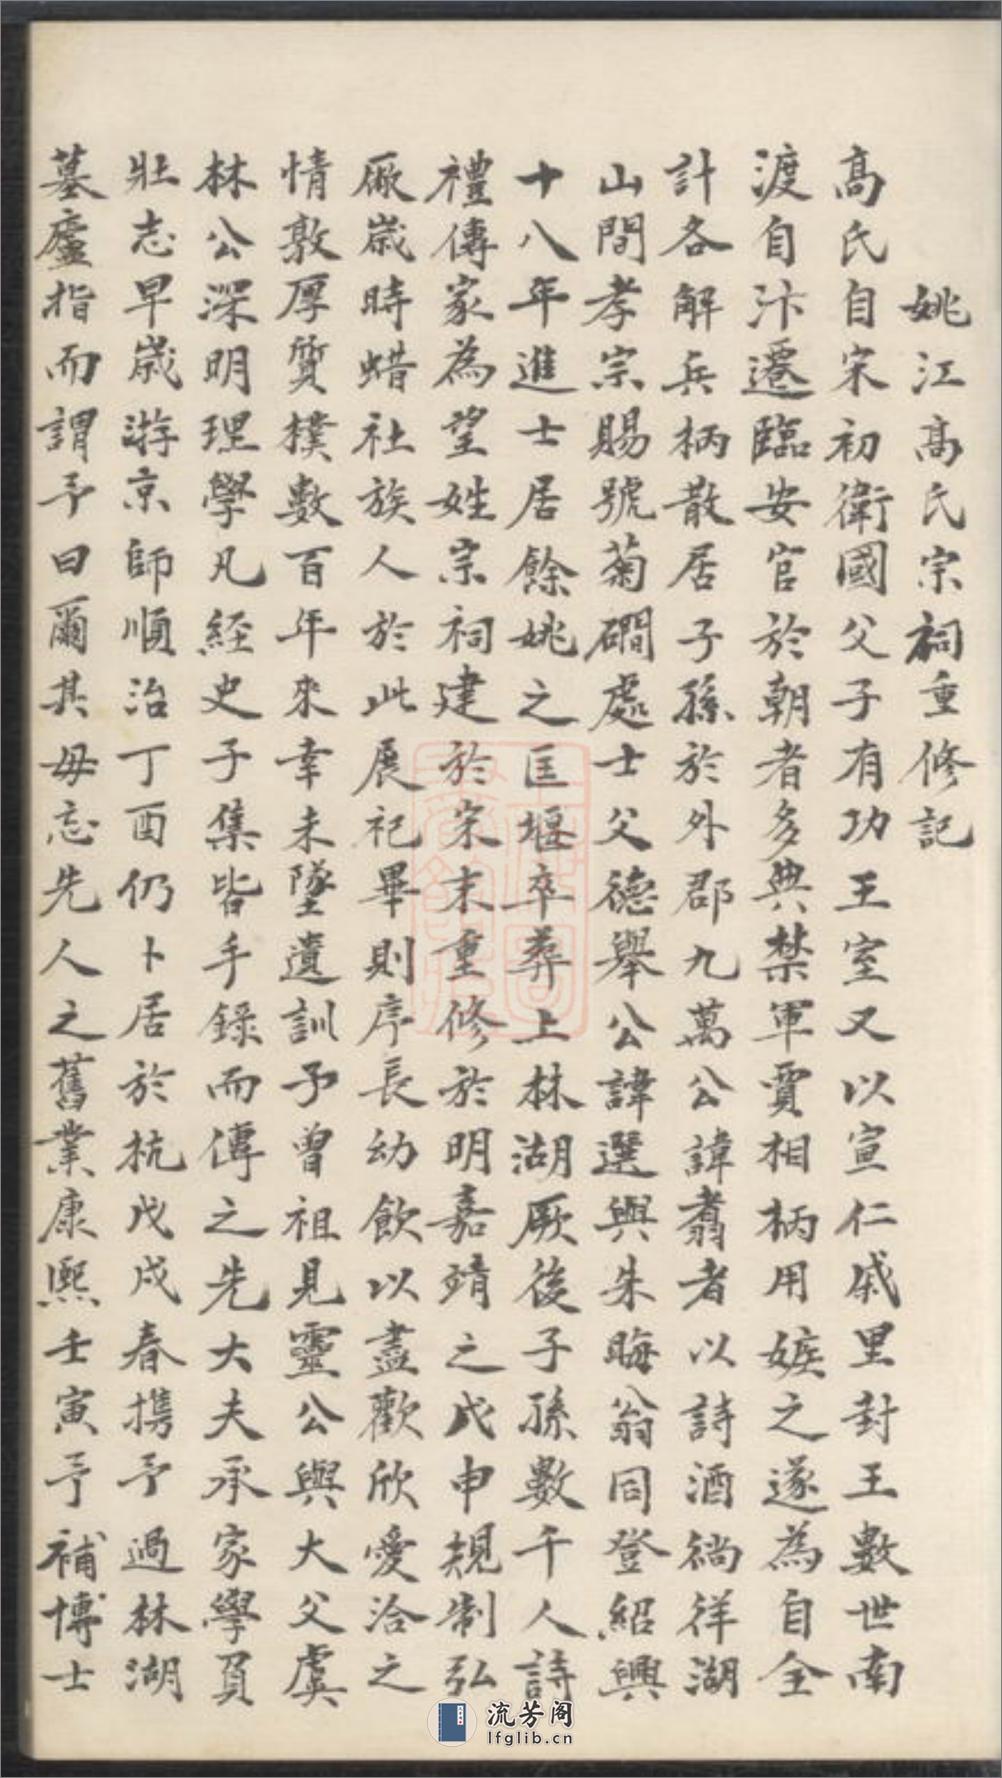 姚江髙氏宗祠重修記
髙氏自宋初衛國父子有功王室又以宣仁戚里封王數世南
渡自汴遷臨安官於朝者多典禁軍賈相柄用嫉之遂為自全
計各解兵柄散居子孫於外郡九萬公諱翥者以詩酒徜徉湖
山間孝宗賜號菊磵處士父德舉公諱選與朱晦翁同登紹興
十八年進士居餘姚之匡堰卒葬上林湖厥後子孫數千人詩
禮傳家為望姓宗祠建於宋末重修於明嘉靖之戊申規制弘
厰歲時蜡社族人於此展祀畢則序長幼飲以盡歡欣愛洽之
情敦厚質樸數百年來幸未墜遺訓予曾祖見靈公與大父虞
林公深明理學凡經史子集皆手錄而傳之先大夫承家學負
壯志早歲游京師順治丁酉仍卜居於杭戊戌春攜予過林湖
墓廬指而謂予曰爾其毋忘先人之舊業康熙壬寅予補博士
流芳阁
lfglib.cn